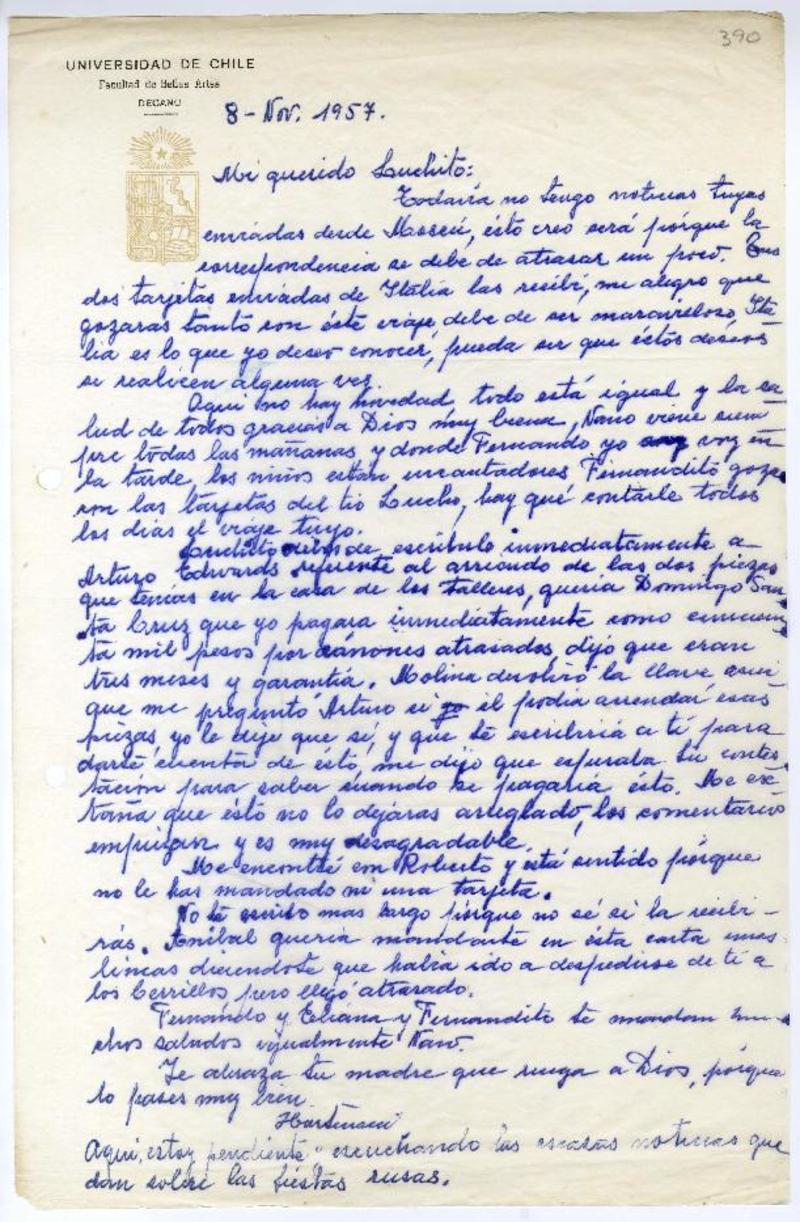 390
UNIVERSIDAD DE CHILE
Facultad de Bellas Artes
DECANO
8 - Nov. 1957.
Mi querido Luchito:
Todavía no tengo noticias tuyas
enviadas desde Moscú, ésto creo será pórque la
correspondencia se debe de atrasar un poco. Tus
dos tarjetas enviadas de Itália las recibí, me alegro que
gozaras tanto con éste viaje debe de ser maravilloso, Ita-
lia es lo que yo deseo conocer, pueda ser que éstos deseos
se realicen alguna ves.
Aquí no hay novedad todo está igual y la sa-
lud de todos gracias a Dios muy buena, Nano viene siem
pre todas las mañanas, y donde Fernando yo voy en
la tarde, los niños estan encantadores, Fernandito goza
con las tarjetas del tio Lucho, hay qué contarle todos
los dias el viaje tuyo.
Luchito debes de escribirle inmediatamente a
Arturo Edwards referente al arriendo de las dos piezas
que tenías en la casa de los talleres, quería Domingo San-
ta Cruz que yo pagara inmediatamente como cincuen-
ta mil pesos por cánones atrasados, dijo que eran
tres meses y garantía. Molina devolvió la llave, asi
que me preguntó Arturo si el podía arrendar esas
piezas, yo le dije que sí, y que te escribiría a tí para
darte cuenta de ésto, me dijo que esperaba tu contes-
tación para saber cuando se pagaría ésto. Me ex-
traña que ésto no lo dejáras arreglado, los comentarios
empiezan y es muy desagradable.
Me encontré con Roberto y está sentido pórque
no le has mandado ni una tarjeta.
No té escribo mas largo pórque no sé si la recibi-
rás. Anibal quería mandarte en ésta carta unas
lineas diciendote que había ido a despedirse de tí a
los Cerrillos pero llegó atrasado.
Fernando y Eliana y Fernandito te mandan mu-
chos saludos igualmente Nano.
Te abraza tu madre que ruega a Dios, pórque
lo pases muy bien.
Aquí, estoy pendiente escuchando las escasas noticias que
dan sobre las fiestas rusas.